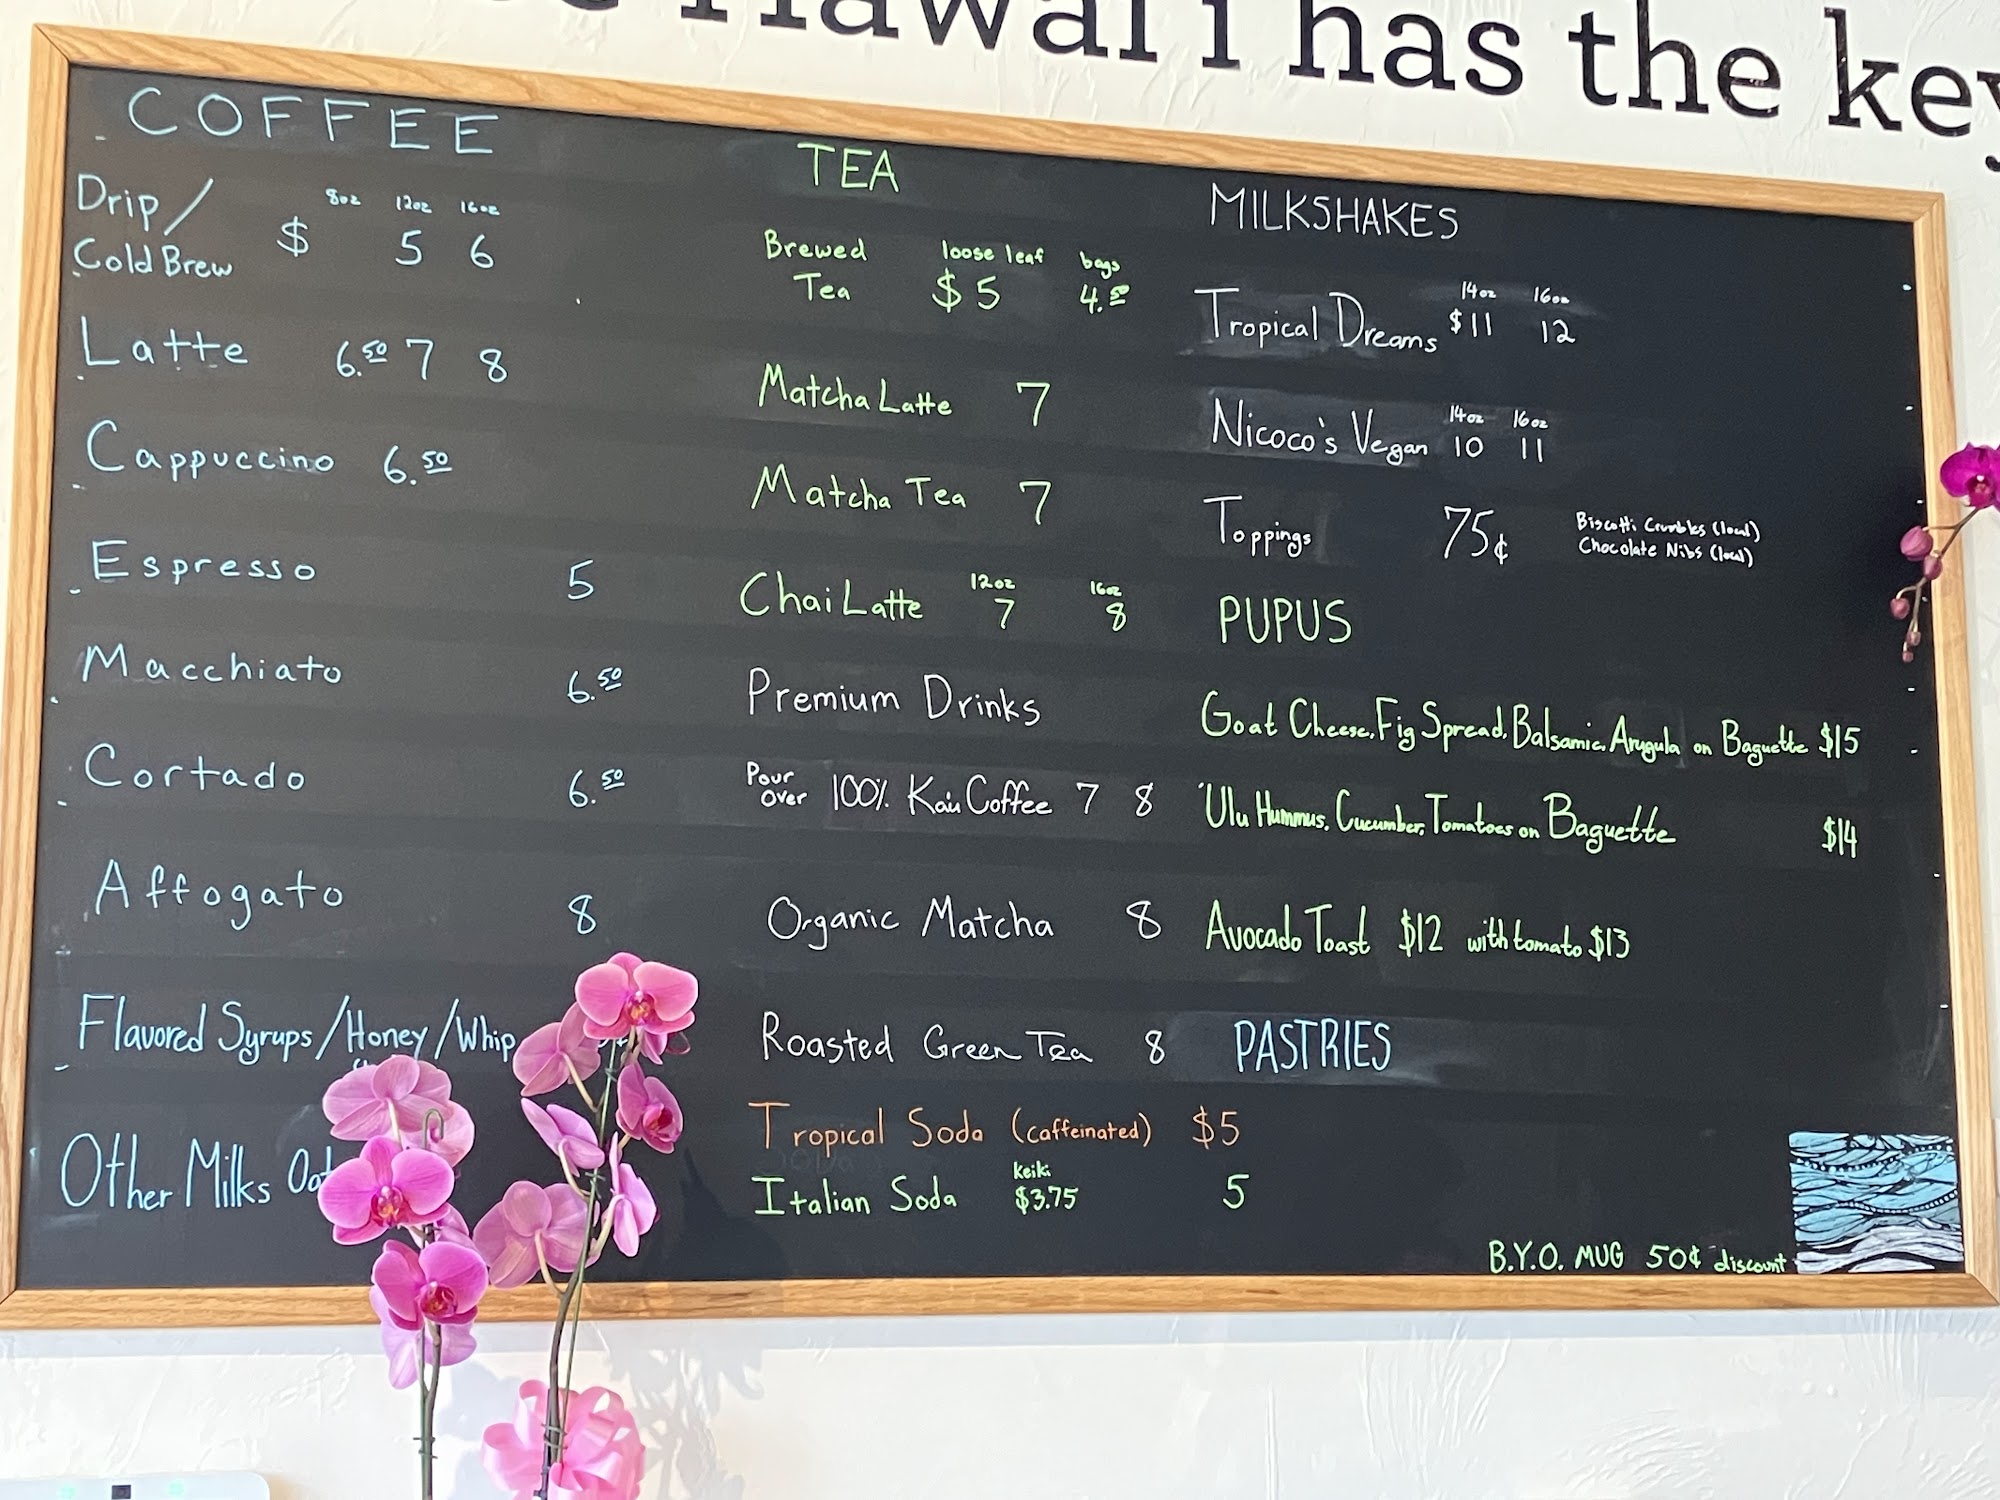 Hawai'i has the key
COFFEE
8oz 12oz 16oz
Drip/ Cold Brew $ 5 6
Latte 6.50 7 8
Cappuccino 6.50
Espresso 5
Macchiato 6.50
Cortado 6.50
Affogato 8
Flavored Syrups/Honey/Whip
Other Milks
TEA
loose leaf bags
Brewed Tea $5 4.50
Matcha Latte 7
Matcha Tea 7
12oz 16oz
Chai Latte 7 8
Premium Drinks
Pour Over 100% Ka'u Coffee 7 8
Organic Matcha 8
Roasted Green Tea 8
Tropical Soda (caffeinated) $5
keiki
Italian Soda $3.75 5
MILKSHAKES
14oz 16oz
Tropical Dreams $11 12
14oz 16oz
Nicoco's Vegan 10 11
Toppings 75¢
Biscotti Crumbles (local)
Chocolate Nibs (local)
PUPUS
Goat Cheese, Fig Spread, Balsamic, Arugula on Baguette $15
'Ulu Hummus, Cucumber, Tomatoes on Baguette $14
Avocado Toast $12 with tomato $13
PASTRIES
B.Y.O. MUG 50¢ discount